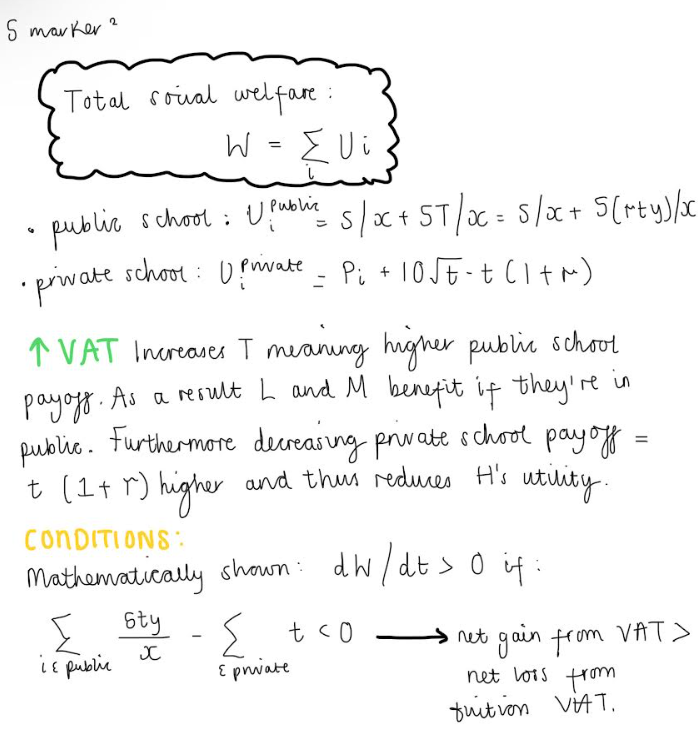 5 marker ²
Total social welfare :
W = Σ Ui
i
• public school : Uᵢᵖᵘᵇˡⁱᶜ = 5/x + 5T/x = 5/x + 5(rty)/x
• private school : Uᵢᵖʳⁱᵛᵃᵗᵉ = Pi + 10√t - t (1+r)
↑ VAT Increases T meaning higher public school
payoff. As a result L and M benefit if they're in
public. Furthermore decreasing private school payoff =
t (1+r) higher and thus reduces H's utility.
CONDITIONS:
Mathematically shown: dW/dt > 0 if:
Σ 5ty/x - Σ t < 0 → net gain from VAT >
i ε public ε private net loss from
tuition VAT.